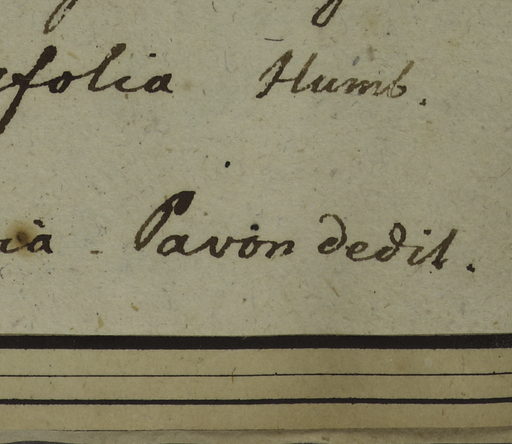 folia Humb.
ia - Pavòn dedit.